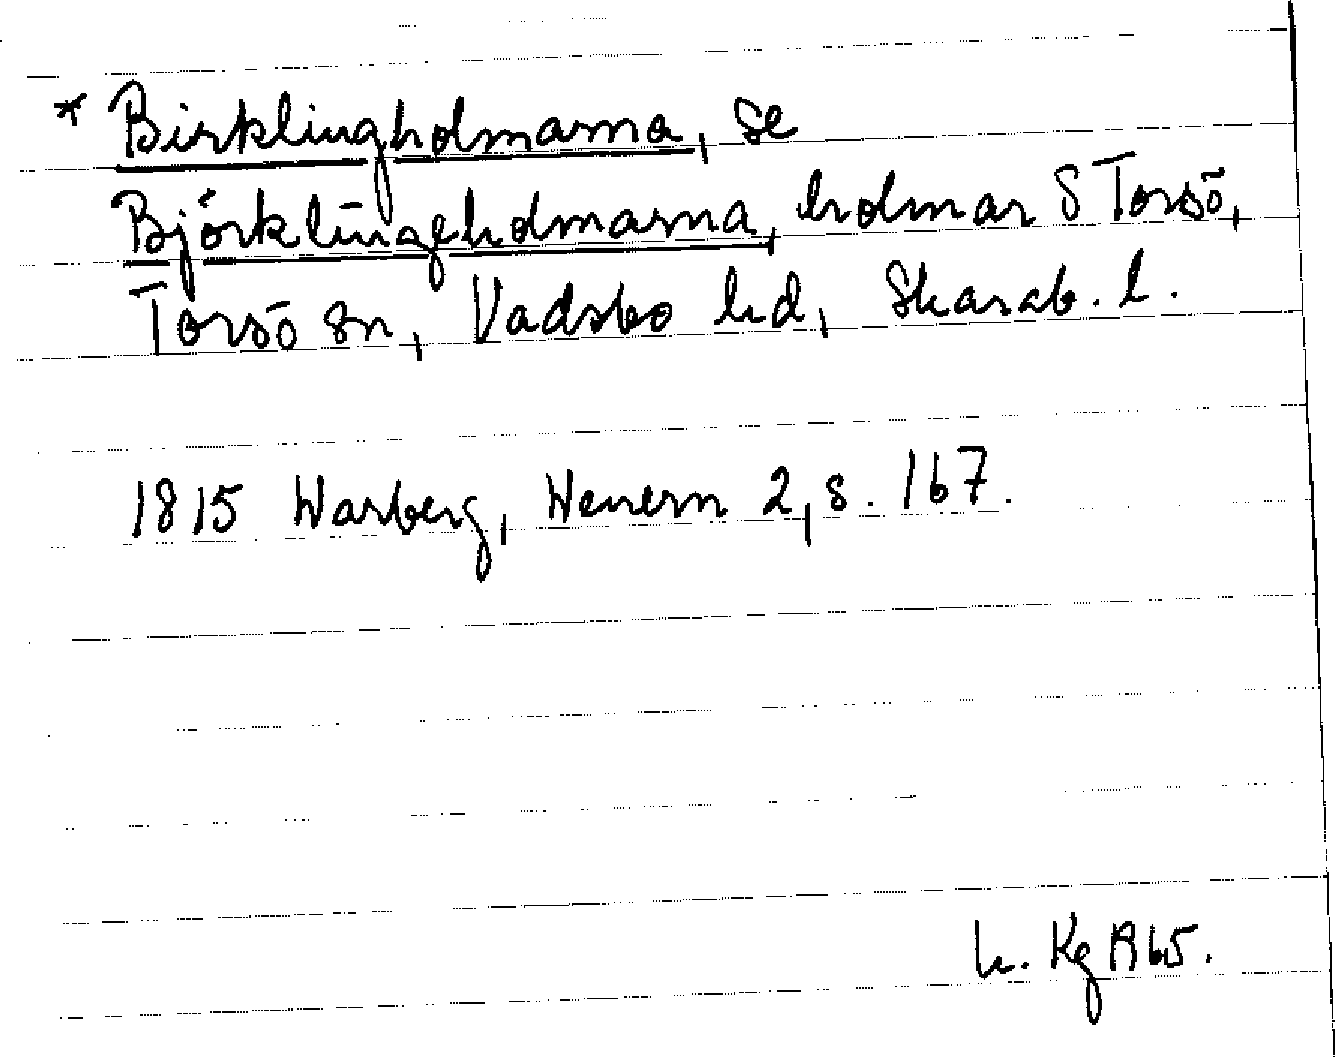 * Birklingholmarna, se
Björklingeholmarna, holmar S Torsö,
Torsö sn, Vadsbo hd, Skarab. l.
1815 Warberg, Wenern 2, s. 167.
h. Kg